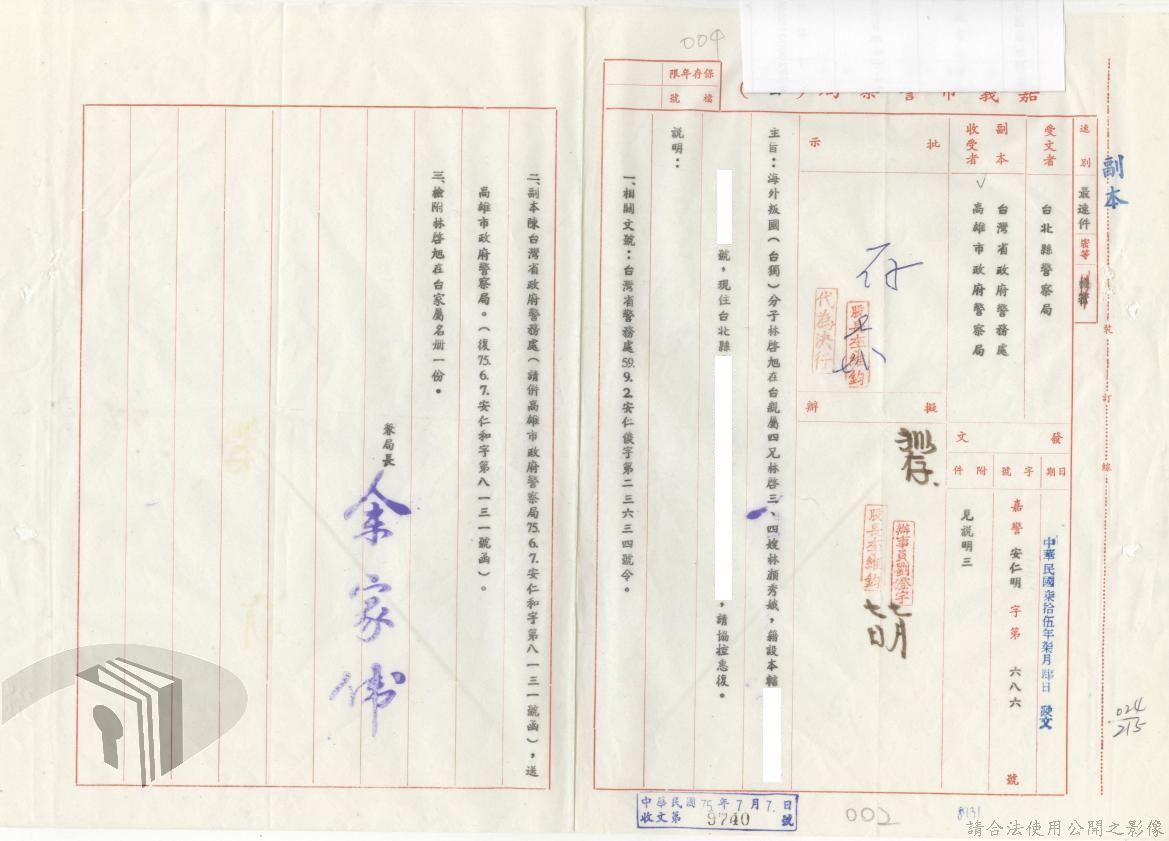 004
副本
嘉義市警察局
保存年限
檔號
速別
最速件
密等
受文者
台北縣警察局
副本收受者
台灣省政府警務處
高雄市政府警察局
批示
存
代為決行
擬辦
存
辦事員劉澄宇
七月七日
發文
日期
中華民國柒拾伍年柒月肆日 發文
字號
嘉警安仁明字第六八六號
附件
見說明三
裝訂線
主旨：海外叛國（台獨）分子林啓旭在台親屬四兄林啓三、四嫂林顏秀娥，籍設本轄
號，現住台北縣
，請協控惠復。
說明：
一、相關文號：台灣省警務處59.9.2.安仁俊字第二三六三四號令。
二、副本陳台灣省政府警務處（請併高雄市政府警察局75.6.7.安仁和字第八一三一號函），送
高雄市政府警察局。（復75.6.7.安仁和字第八一三一號函）。
三、檢附林啓旭在台家屬名册一份。
兼局長
余家偉
中華民國75年7月7日
收文第9740號
002
8131
024
215
請合法使用公開之影像